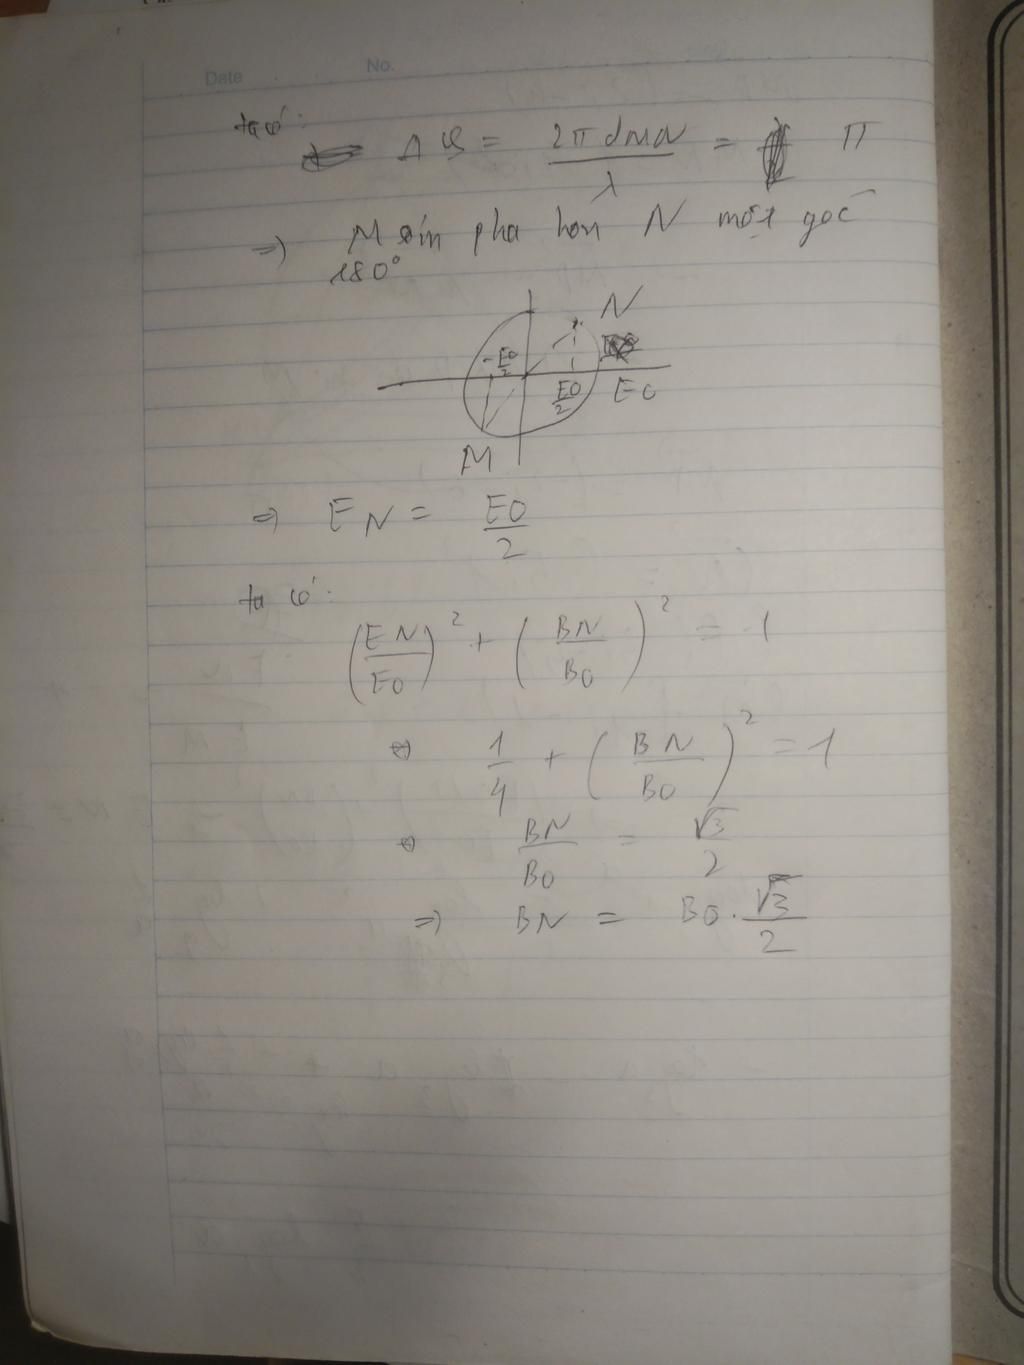 Date No.
ta có:
Δφ = 2π dMN / λ = π
=) M sớm pha hơn N một góc
180°
N
-E0/2
E0/2 E0
M
=) EN = E0/2
ta có:
(EN/E0)² + (BN/B0)² = 1
⇔ 1/4 + (BN/B0)² = 1
⇔ BN/B0 = √3/2
=) BN = B0 . √3/2